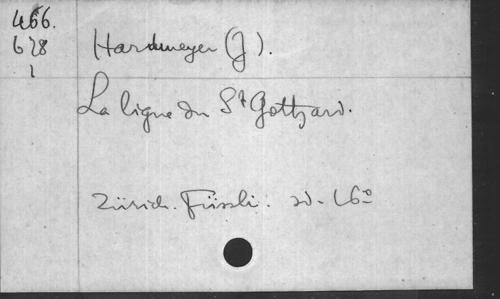 466.
628
1
Hardmeyer (J).
La ligne du St Gothard.
Zürich. Füssli. sd. 16º